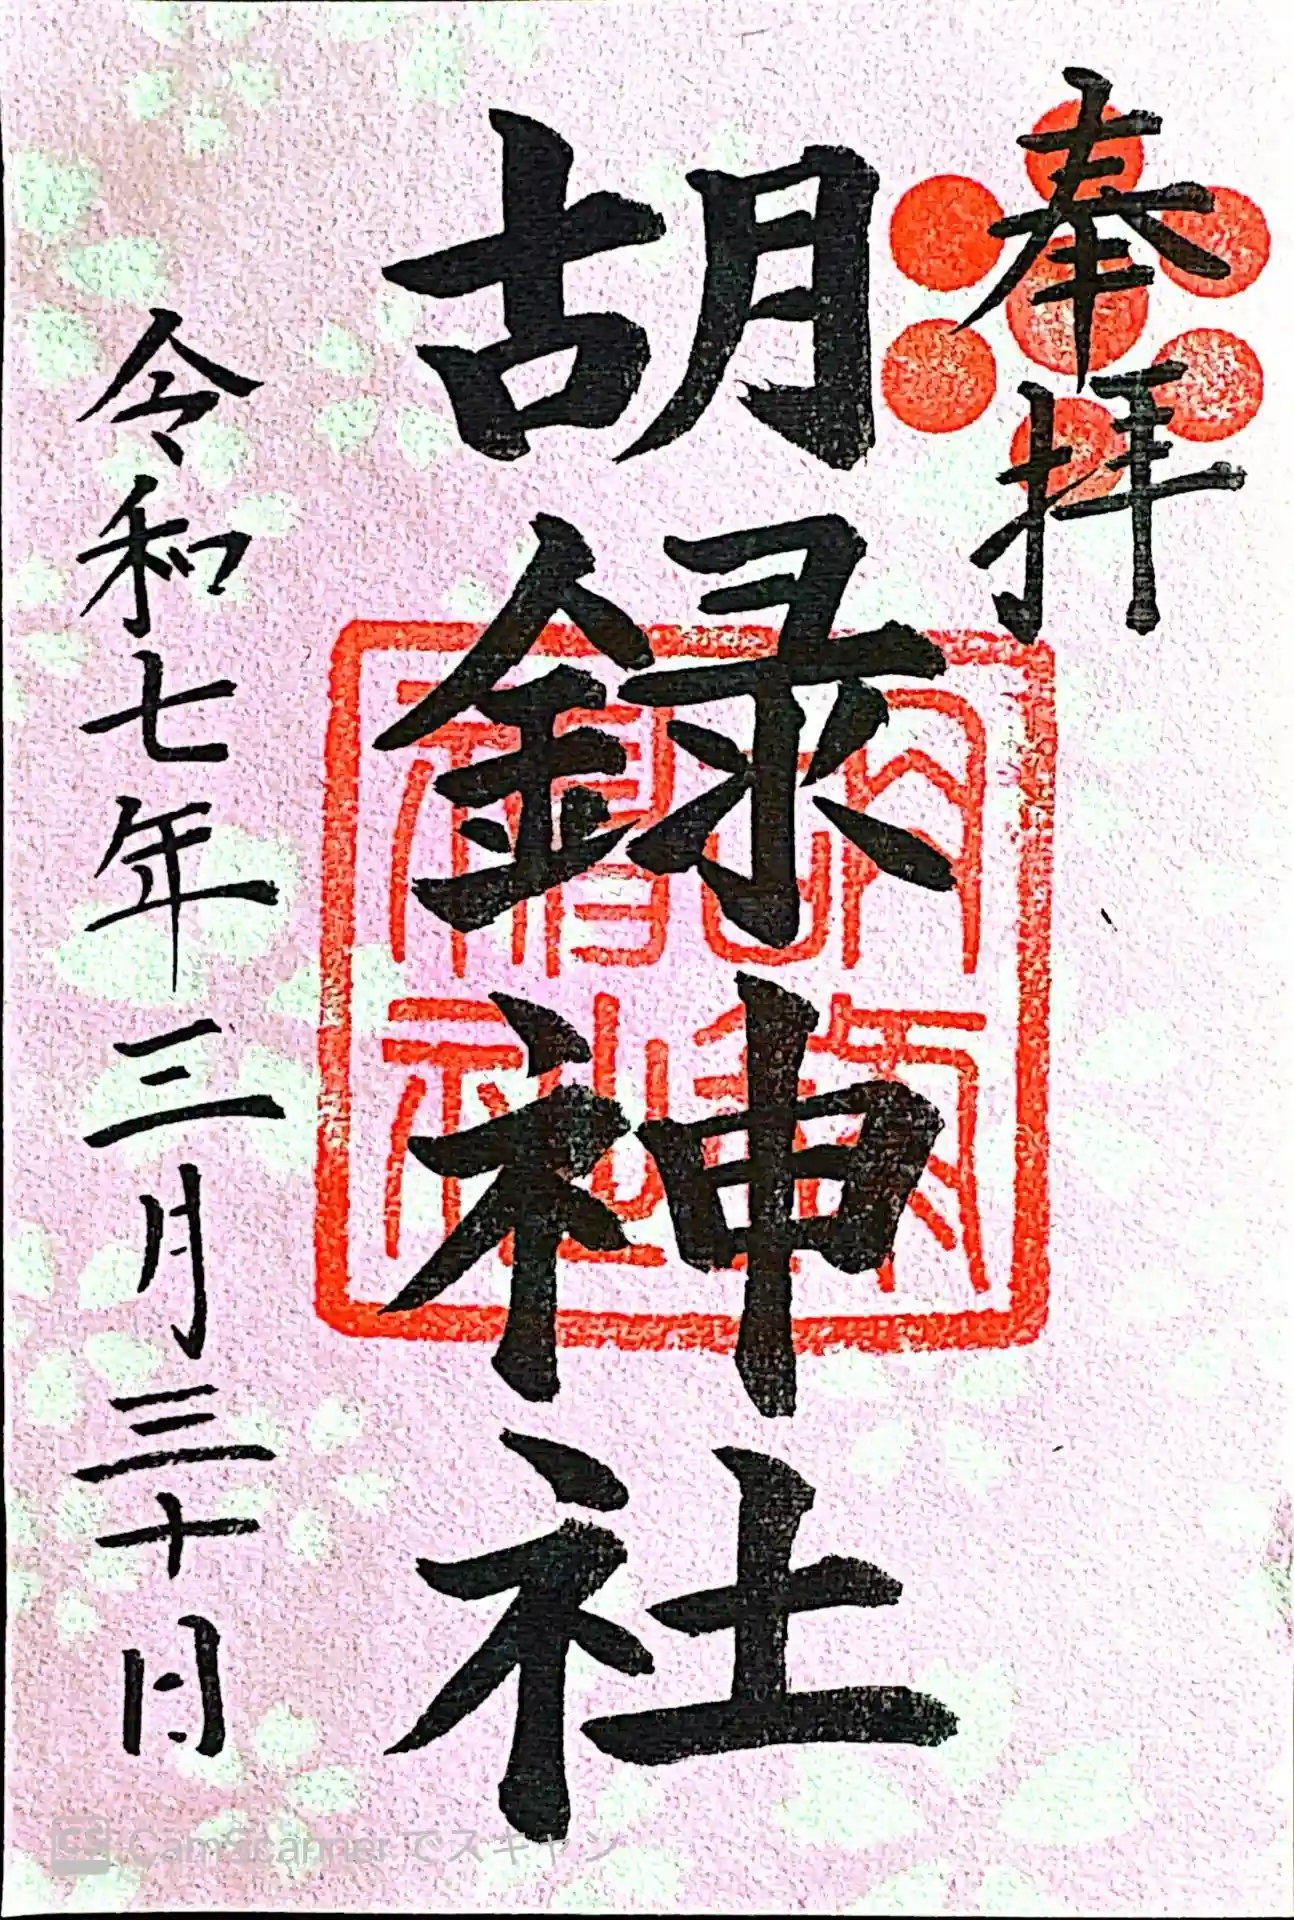 奉拝
胡録神社
令和七年三月三十日
CS CamScanner でスキャン